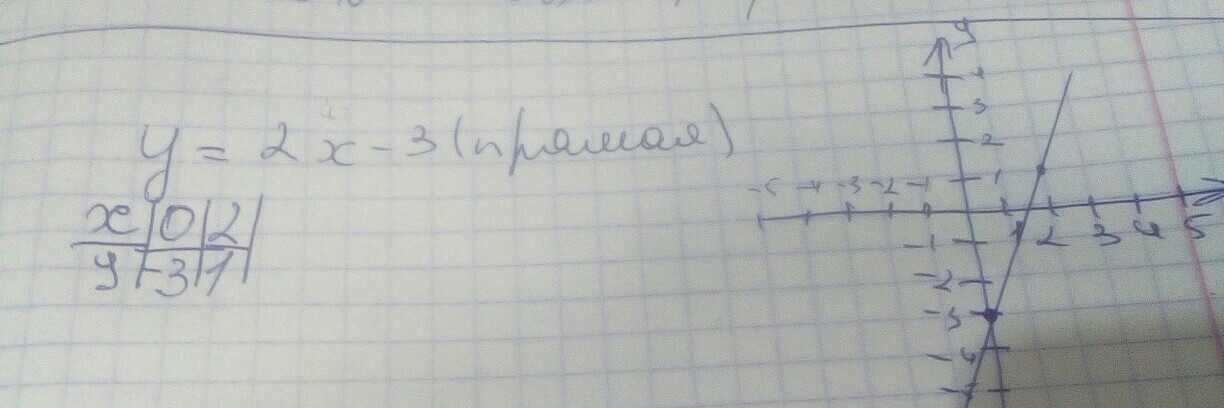 y = 2x - 3 (прямая)
x | 0 | 2 |
y | -3 | 1 |
y
4
3
2
1
-5 -4 -3 -2 -1
1 2 3 4 5
-1
-2
-3
-4